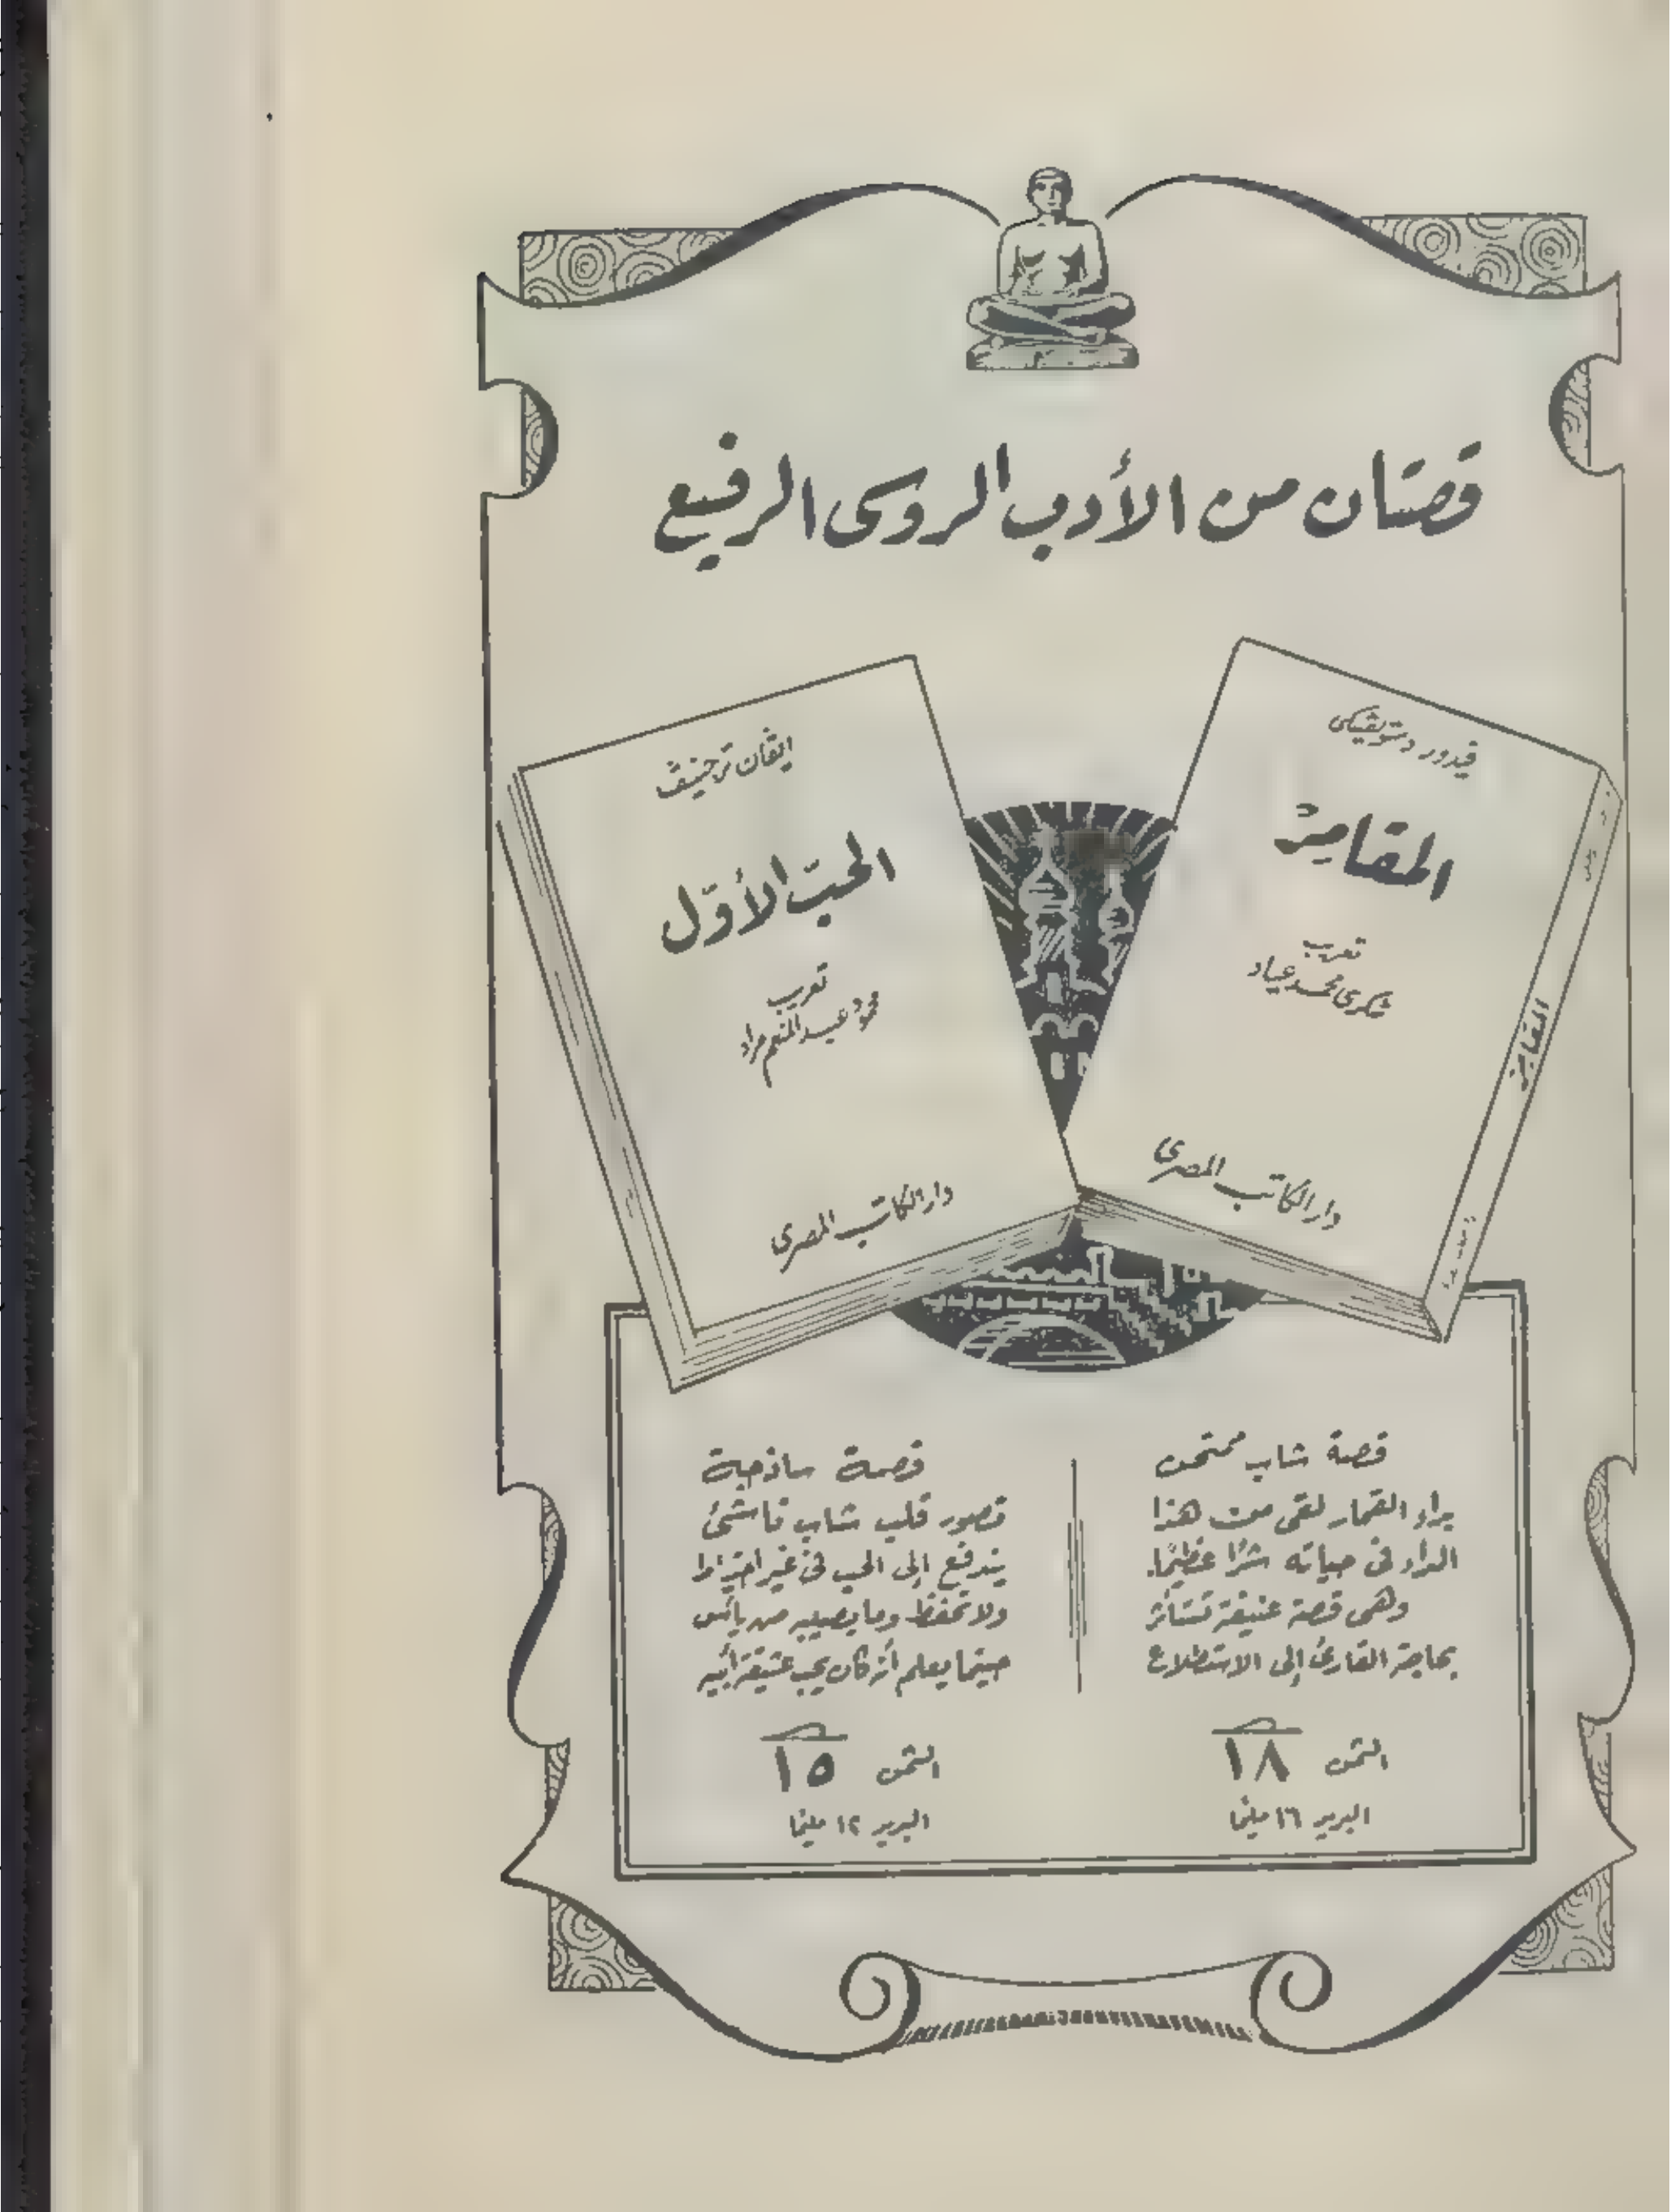 قصتان من الأدب الروسى الرفيع
فيدور دستويڤسكى
المقامر
تعريب
شكرى محمد عياد
دار الكاتب المصرى
المقامر
ايڤان ترجنيڤ
الحب الأوّل
تعريب
محمود عبد المنعم مراد
دار الكاتب المصرى
قصة شاب ممتحن
بداء القمار لقى من هذا
الداء فى حياته شرًا عظيمًا.
وهى قصة عنيفة تستأثر
بحاجة القارئ إلى الاستطلاع
الثمن ١٨
البريد ١٦ مليما
قصة ساذجة
تصور قلب شاب ناشئ
يندفع إلى الحب فى غير احتياط
ولا تحفظ وما يصيبه من يأس
حينما يعلم أنه كان يحب عشيقة أبيه
الثمن ١٥
البريد ١٢ مليما